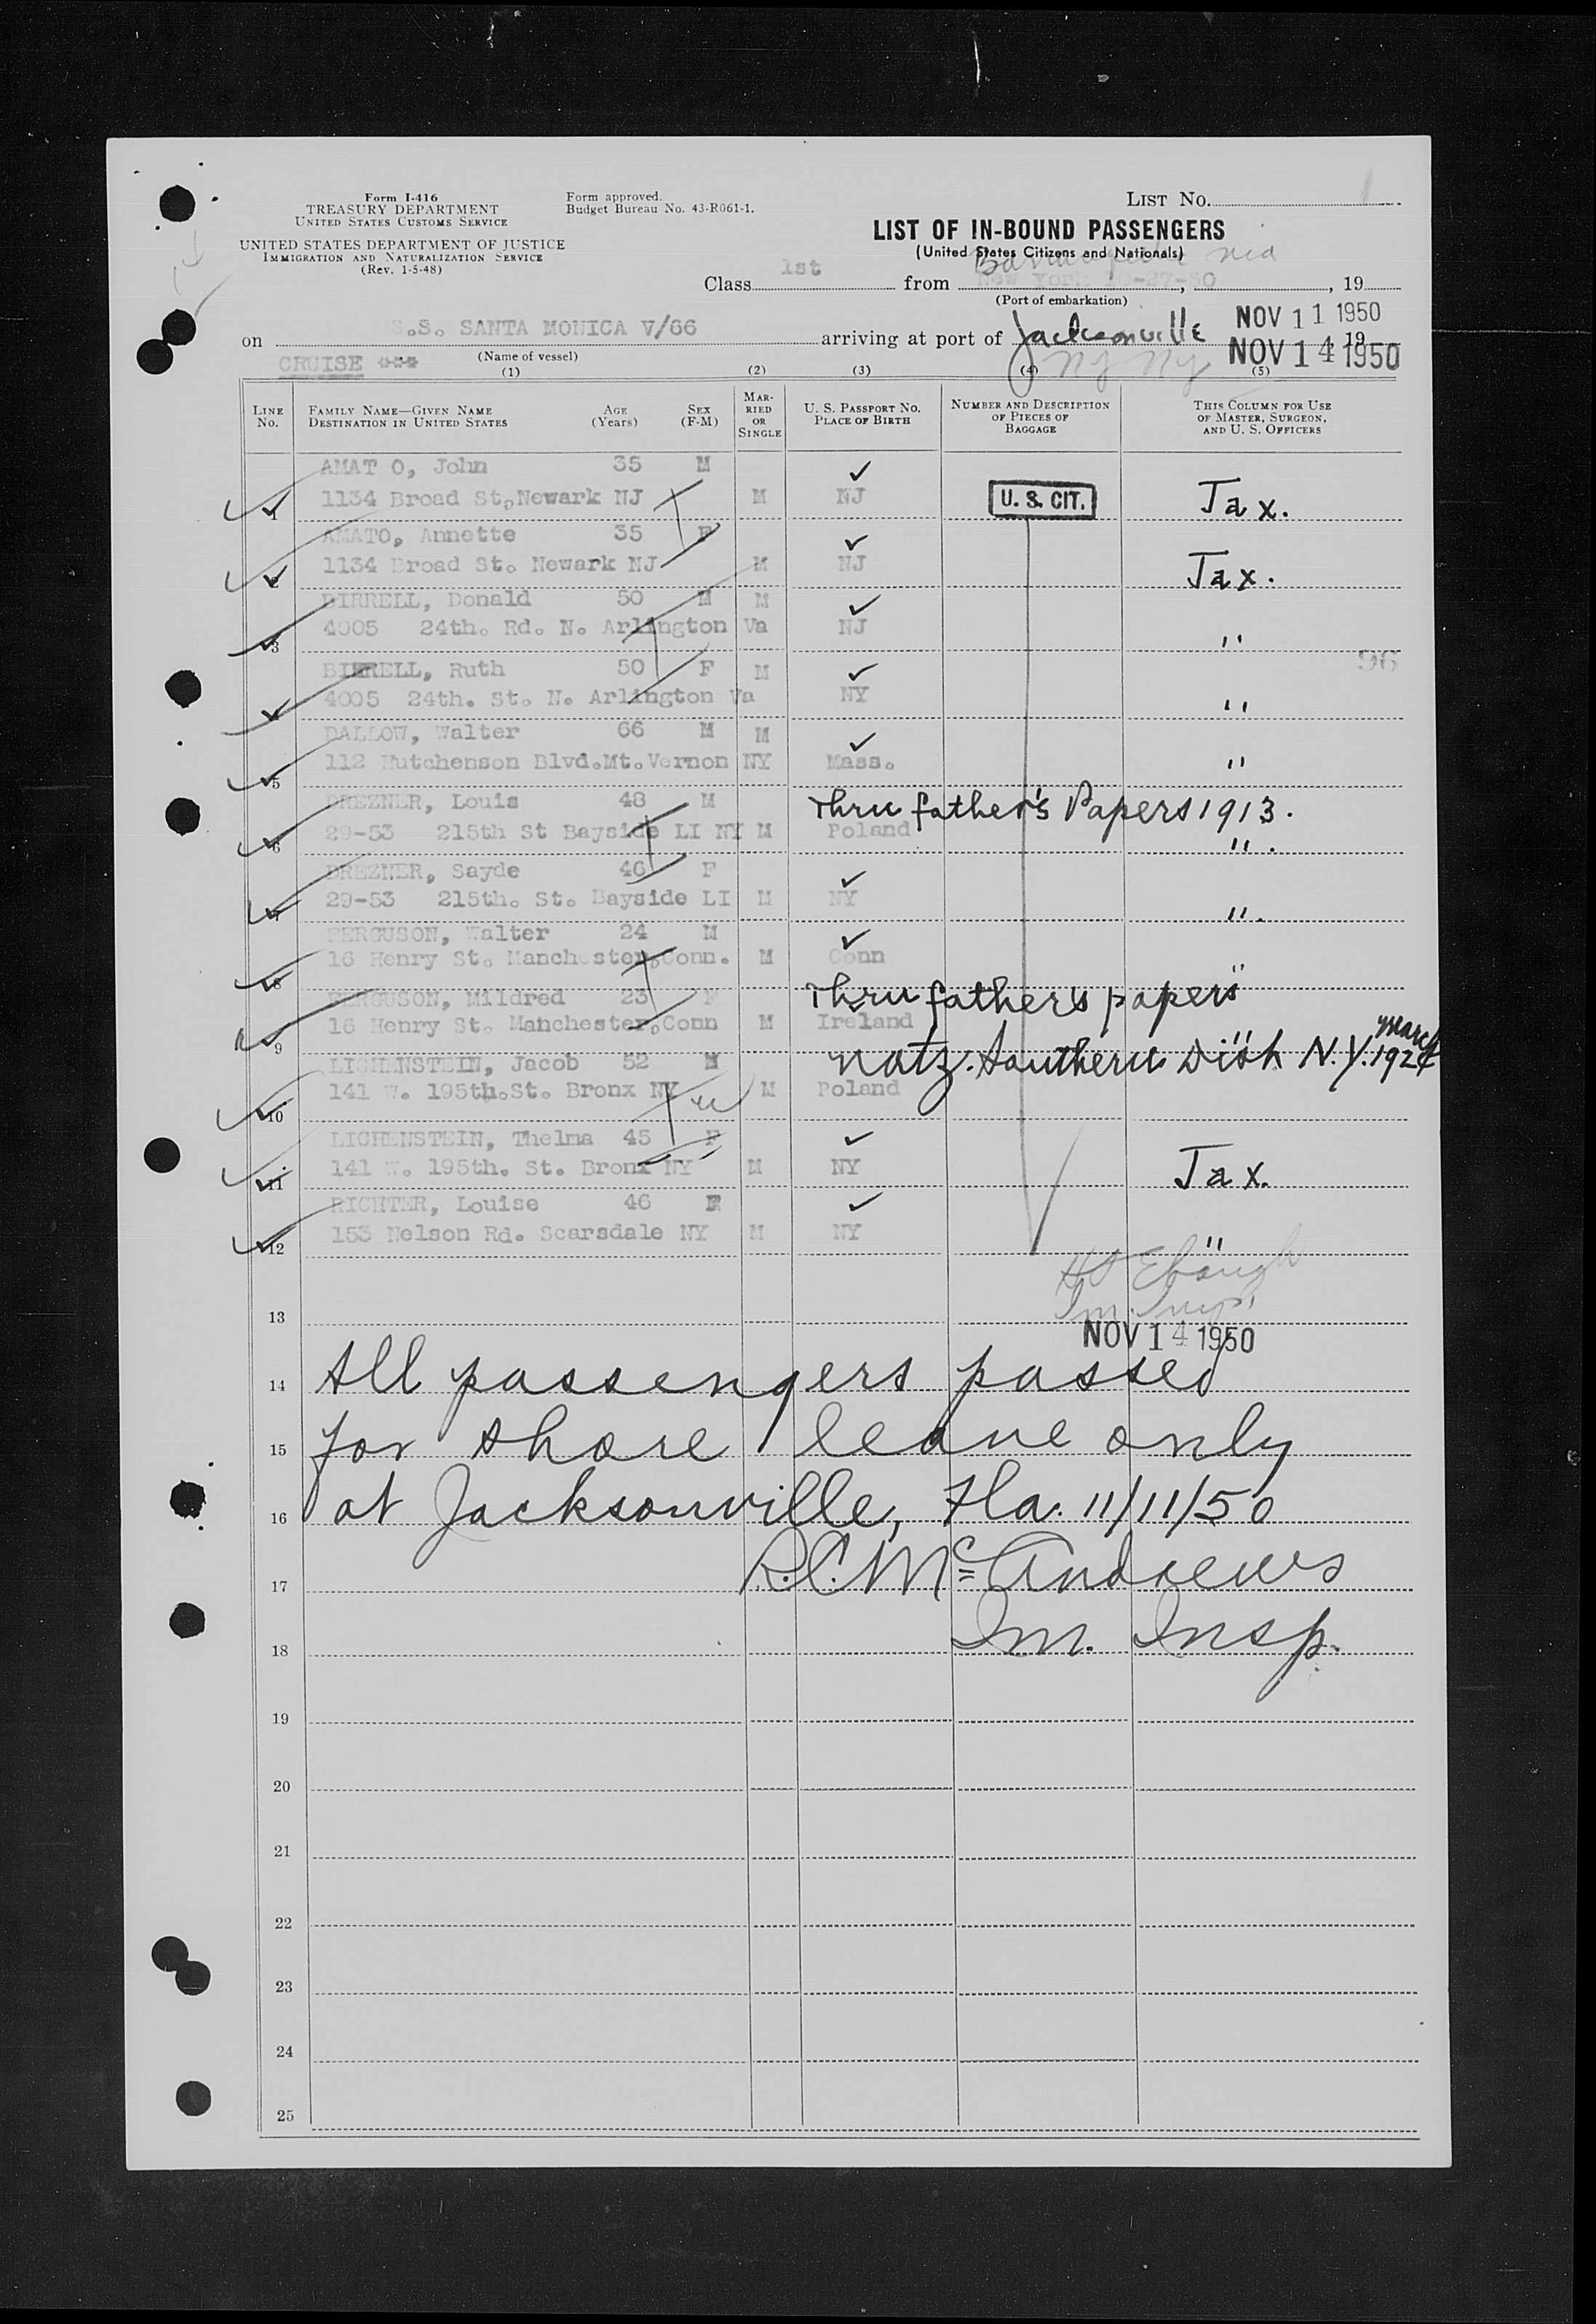 Form I-416
TREASURY DEPARTMENT
UNITED STATES CUSTOMS SERVICE
UNITED STATES DEPARTMENT OF JUSTICE
IMMIGRATION AND NATURALIZATION SERVICE
(Rev. 1-5-48)
Form approved.
Budget Bureau No. 43-R061-1.
LIST NO. 1
LIST OF IN-BOUND PASSENGERS
(United States Citizens and Nationals)
Class 1st from New York 10-27-50, 19
(Port of embarkation)
on S.S. SANTA MONICA V/66 arriving at port of Jacksonville NOV 11 1950
19
CRUISE (Name of vessel) NY NY NOV 14 1950
(1) (2) (3) (4) (5)
LINE No.
FAMILY NAME—GIVEN NAME
DESTINATION IN UNITED STATES
AGE (Years)
SEX (F-M)
MARRIED OR SINGLE
U. S. PASSPORT NO.
PLACE OF BIRTH
NUMBER AND DESCRIPTION OF PIECES OF BAGGAGE
THIS COLUMN FOR USE OF MASTER, SURGEON, AND U. S. OFFICERS
AMAT O, John 35 M
1 1134 Broad St.Newark NJ M NJ U. S. CIT. Jax.
AMATO, Annette 35 F
2 1134 Broad St. Newark NJ M NJ Jax.
BIRRELL, Donald 50 M M
3 4005 24th. Rd. N. Arlington Va NJ "
BIRRELL, Ruth 50 F M 96
4005 24th. St. N. Arlington Va NY "
DALLOW, Walter 66 M M
5 112 Hutchenson Blvd.Mt.Vernon NY Mass. "
DREZNER, Louis 48 M Thru father's Papers 1913.
6 29-53 215th St Bayside LI NY M Poland ".
DREZNER, Sayde 46 F
7 29-53 215th. St. Bayside LI M NY ".
FERGUSON, Walter 24 M
8 16 Henry St. Manchester,Conn. M Conn "
FERGUSON, Mildred 23 F Thru father's papers
9 16 Henry St. Manchester,Conn M Ireland "
LICHENSTEIN, Jacob 52 M Natz. Southern Dist N.Y. March 1924
10 141 W. 195th.St. Bronx NY M Poland
LICHENSTEIN, Thelma 45 F
11 141 W. 195th. St. Bronx NY M NY Jax.
RICHTER, Louise 46 F
12 153 Nelson Rd. Scarsdale NY M NY "
Im. Insp.
13
NOV 14 1950
14 All passengers passed
15 for shore leave only
16 at Jacksonville, Fla. 11/11/50
17 R.C. McAndrews
18 Im. Insp.
19
20
21
22
23
24
25